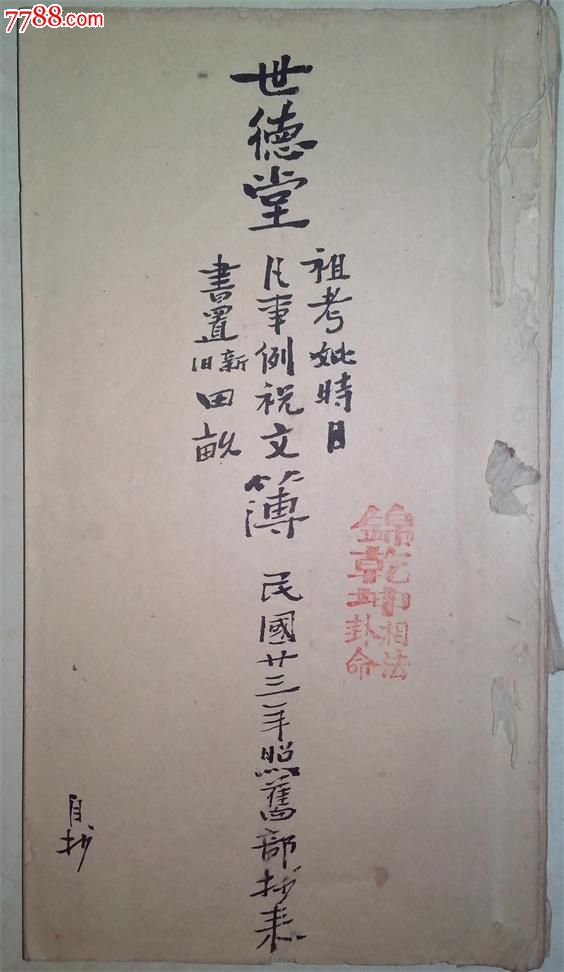 7788.com
中国收藏热线
世德堂
祖考妣時日
凡事例祝文
書置新旧田畝
簿
民國廿三年照舊部抄来
自抄
錦乾坤
相法
卦命